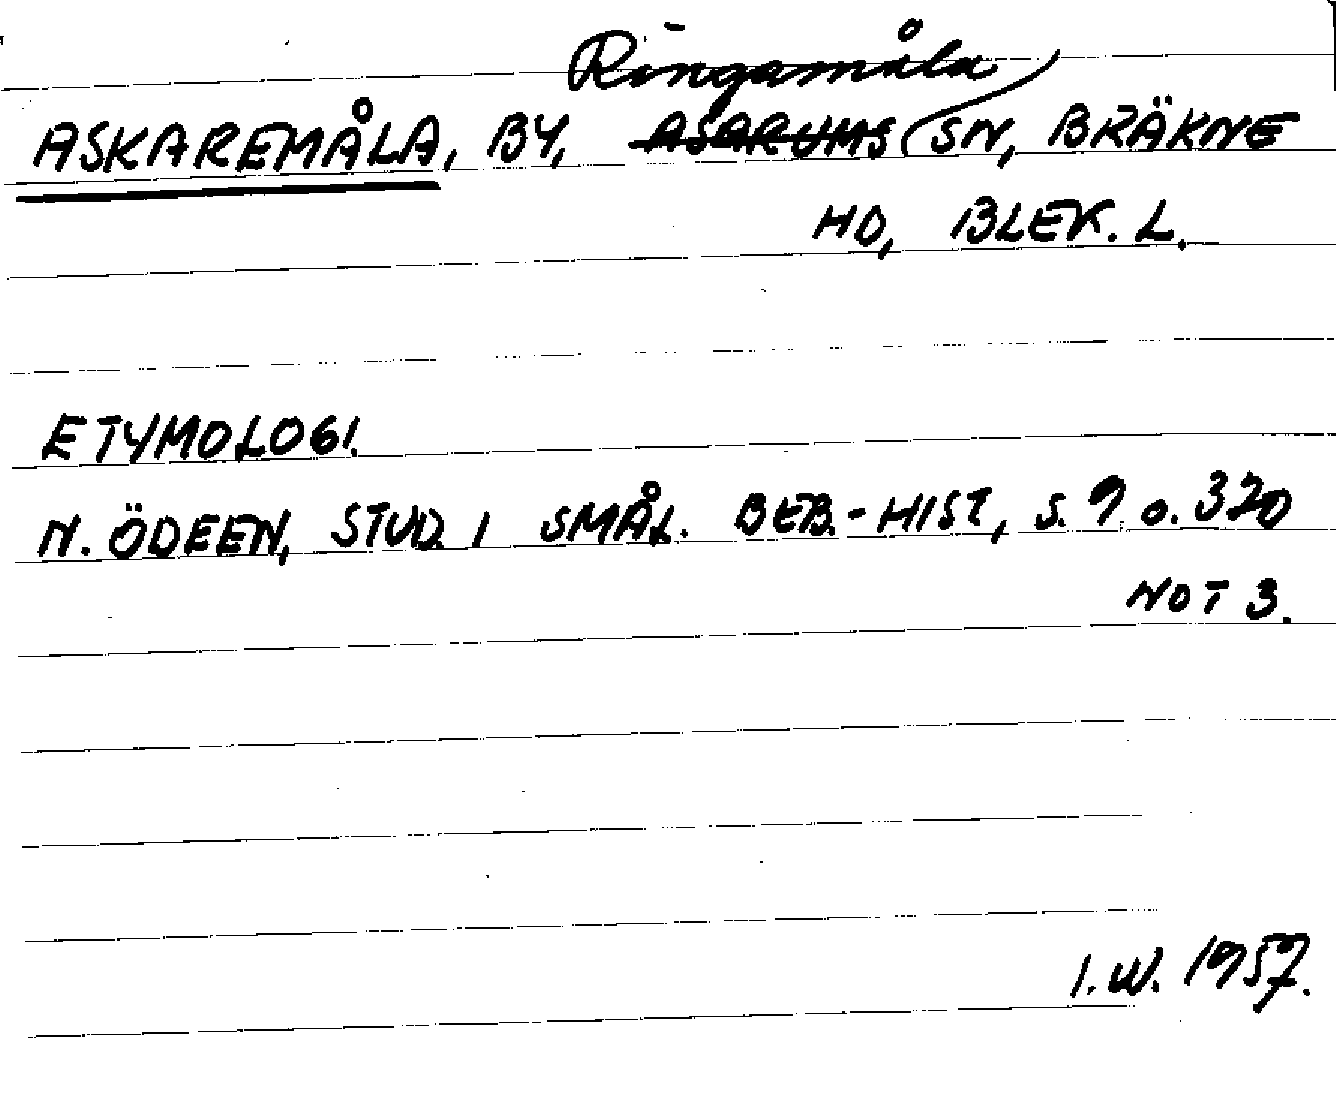 Ringamåla
ASKAREMÅLA, BY, ASARUMS SN, BRÄKNE
HD, BLEK. L.
ETYMOLOGI.
N. ÖDEEN, STUD. I SMÅL. BEB.-HIST, S. 9 o. 320
NOT 3.
I.W. 1957.